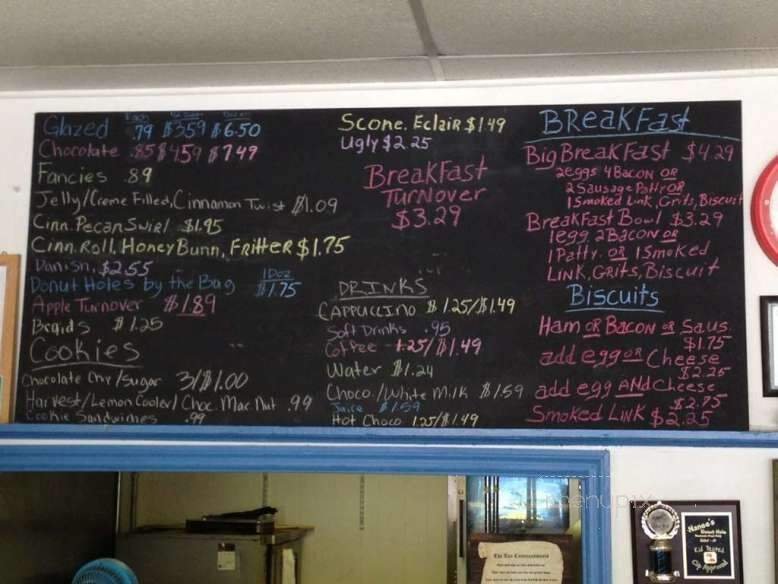 Each Doz.
Glazed .79 $3.59 $6.50
Chocolate .85 $4.59 $7.49
Fancies .89
Jelly/Creme Filled, Cinnamon Twist $1.09
Cinn. Pecan Swirl $1.95
Cinn. Roll, Honey Bunn, Fritter $1.75
Danish, $2.55
1 Doz
Donut Holes by the Bag $1.75
Apple Turnover $1.89
Braids $1.25
Cookies
Chocolate Chr/Sugar 3/$1.00
Harvest/Lemon Cooler/Choc. Mac Nut .99
Cookie Sandwiches .99
Scone, Eclair $1.49
Ugly $2.25
Breakfast
Turnover
$3.29
DRINKS
Cappuccino $1.25/$1.49
Soft Drinks .95
Coffee 1.25/$1.49
Water $1.24
Choco./White Milk $1.59
Juice $1.59
Hot Choco 1.25/$1.49
Breakfast
Big Breakfast $4.29
2eggs 4Bacon OR
2 Sausage Patty OR
1 Smoked Link, Grits, Biscuit
Breakfast Bowl $3.29
1egg 2Bacon OR
1 Patty OR 1 Smoked
Link, Grits, Biscuit
Biscuits
Ham OR Bacon OR Saus.
$1.75
add egg OR Cheese
$2.25
add egg AND Cheese
$2.75
Smoked Link $2.25
menupix
The Ten Commandments